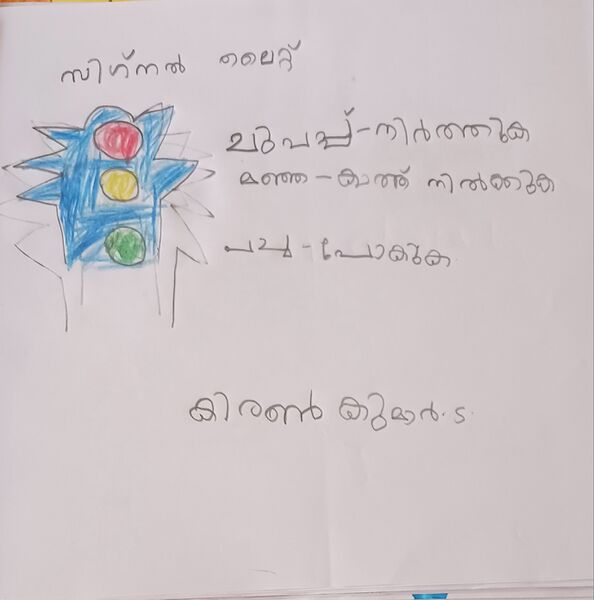 സിഗ്നൽ ലൈറ്റ്
ചുവപ്പ് - നിർത്തുക
മഞ്ഞ - കാത്ത് നിൽക്കുക
പച്ച - പോകുക
കിരൺ കുമാർ. ട.